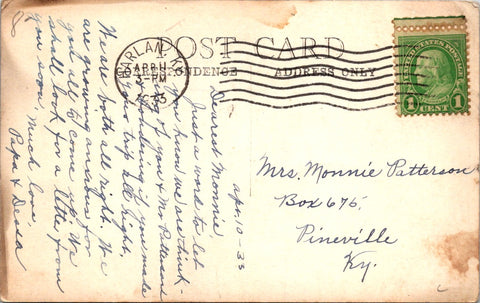 POST CARD
CORRESPONDENCE
ADDRESS ONLY
HARLAN, KY.
APR 11
3-PM
UNITED STATES POSTAGE
1 CENT 1
Apr. 10 - 33
Dearest Monnie,
Just a word to let
you know we are think-
ing of you & Mr Patterson
& hoping if you made
your trip all right.
We are both all right. We
are growing anxious for
you all to come up. We
shall look for a little from
you soon. Much Love
Papa & Dessa
Mrs. Monnie Patterson
Box 675,
Pineville
Ky.